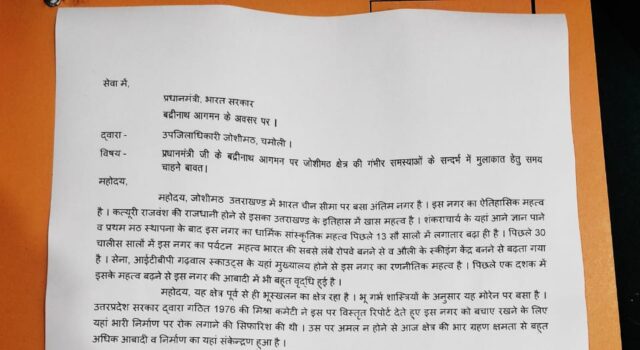 सेवा में,
प्रधानमंत्री, भारत सरकार
बद्रीनाथ आगमन के अवसर पर ।
द्वारा - उपजिलाधिकारी जोशीमठ, चमोली ।
विषय - प्रधानमंत्री जी के बद्रीनाथ आगमन पर जोशीमठ क्षेत्र की गंभीर समस्याओं के सन्दर्भ में मुलाकात हेतु समय
चाहने बावत।
महोदय,
महोदय, जोशीमठ उत्तराखण्ड में भारत चीन सीमा पर बसा अंतिम नगर है । इस नगर का ऐतिहासिक महत्व
है । कत्यूरी राजवंश की राजधानी होने से इसका उत्तराखण्ड के इतिहास में खास महत्व है । शंकराचार्य के यहां आने ज्ञान पाने
व प्रथम मठ स्थापना के बाद इस नगर का धार्मिक सांस्कृतिक महत्व पिछले 13 सौ सालों में लगातार बढ़ा ही है । पिछले 30
चालीस सालों में इस नगर का पर्यटन महत्व भारत की सबसे लंबे रोपवे बनने से व औली के स्कीइंग केंद्र बनने से बढ़ता गया
है । सेना, आईटीबीपी गढ़वाल स्काउट्स के यहां मुख्यालय होने से इस नगर का रणनीतिक महत्व है । पिछले एक दशक में
इसके महत्व बढ़ने से इस नगर की आबादी में भी बहुत वृद्धि हुई है ।
महोदय, यह क्षेत्र पूर्व से ही भूस्खलन का क्षेत्र रहा है । भू गर्भ शास्त्रियों के अनुसार यह मोरेन पर बसा है ।
उत्तरप्रदेश सरकार द्वारा गठित 1976 की मिश्रा कमेटी ने इस पर विस्तृत रिपोर्ट देते हुए इस नगर को बचाए रखने के लिए
यहां भारी निर्माण पर रोक लगाने की सिफारिश की थी । उस पर अमल न होने से आज क्षेत्र की भार ग्रहण क्षमता से बहुत
अधिक आबादी व निर्माण का यहां संकेन्द्रण हुआ है ।